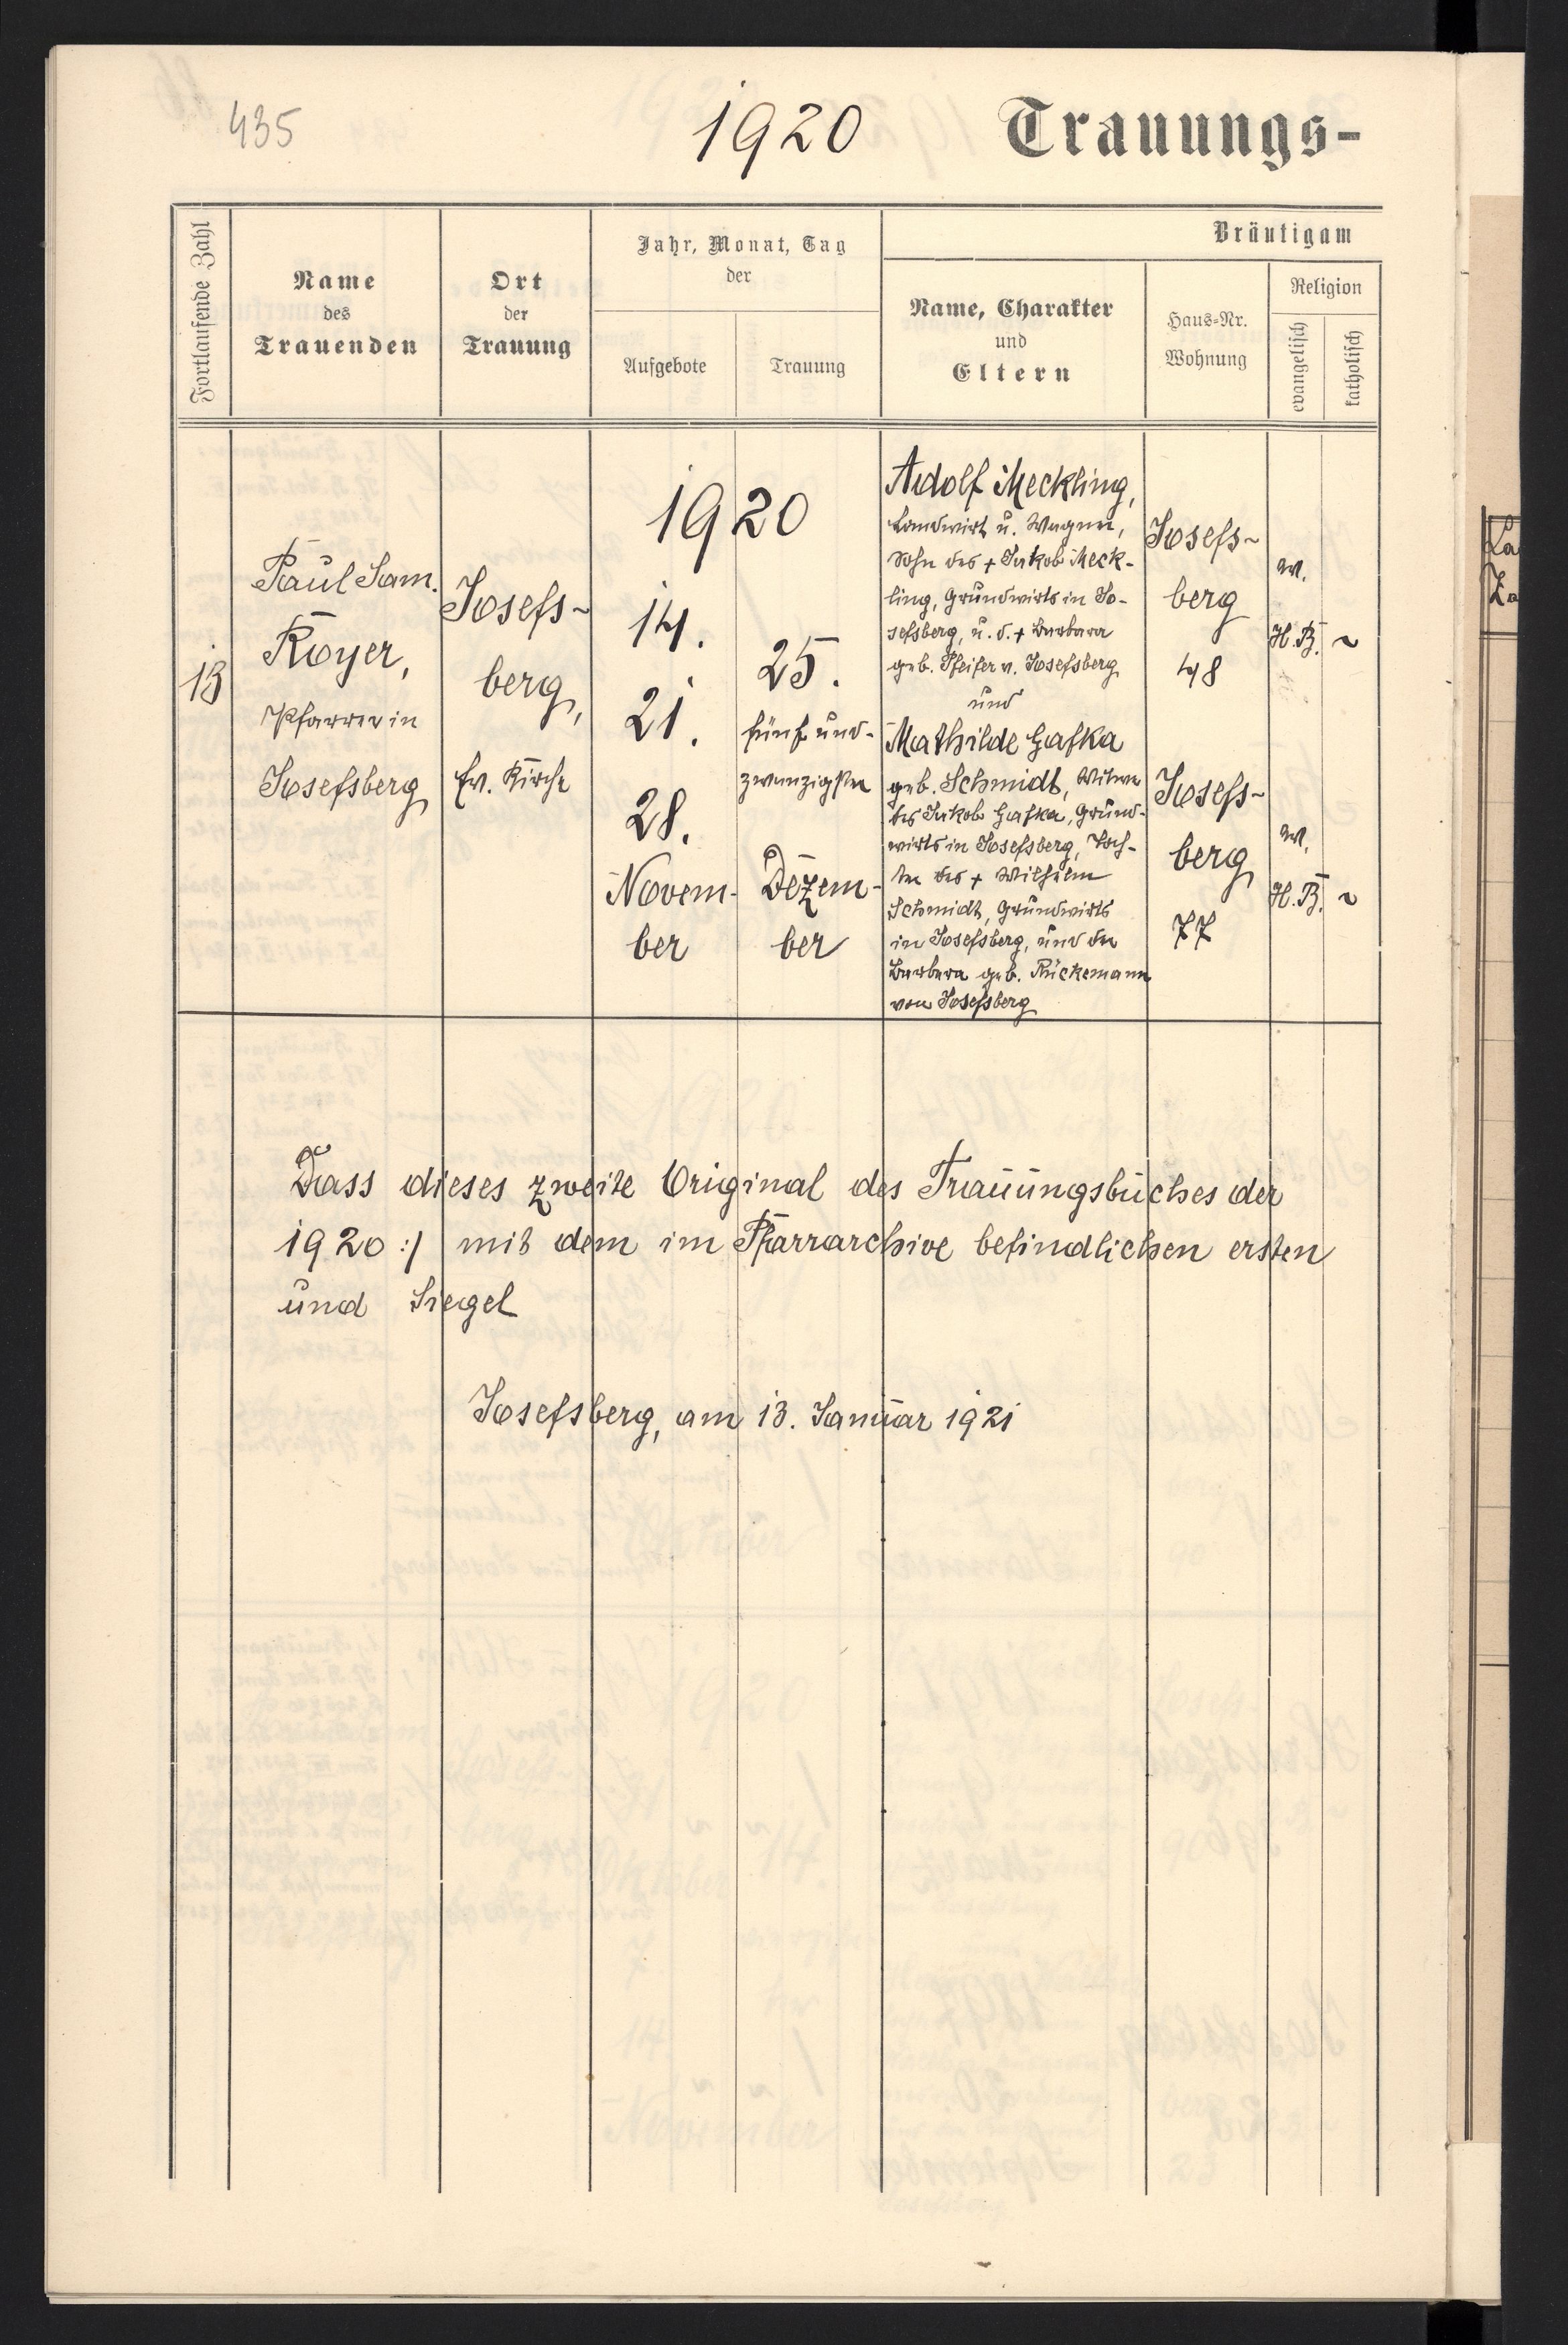 435
1920
Trauungs-
Fortlaufende Zahl
Name
des
Trauenden
Ort
der
Trauung
Jahr, Monat, Tag
der
Aufgebote
Trauung
Bräutigam
Name, Charakter
und
Eltern
Haus-Nr.
Wohnung
Religion
evangelisch
katholisch
13
Paul Sam.
Royer,
Pfarrer in
Josefsberg
Josefs-
berg,
Ev. Kirche
1920
14.
21.
28.
Novem-
ber
25.
fünf und-
zwanzigster
Dezem-
ber
Adolf Meckling,
Landwirt u. Wagner,
Sohn des + Jakob Meck-
ling, Grundwirts in Jo-
sefsberg, u. d. + Barbara
geb. Pfeifer v. Josefsberg
und
Mathilde Gafka
geb. Schmidt, Witwe
des Jakob Gafka, Grund-
wirts in Josefsberg, Toch-
ter des + Wilhelm
Schmidt, Grundwirts
in Josefsberg, und der
Barbara geb. Rückemann
von Josefsberg
Josefs-
berg
48
Josefs-
berg
77
H. B. ~
H. B. ~
Dass dieses zweite Original des Trauungsbuches der
1920 :/ mit dem im Pfarrarchive befindlichen ersten
und Siegel
Josefsberg, am 13. Januar 1921